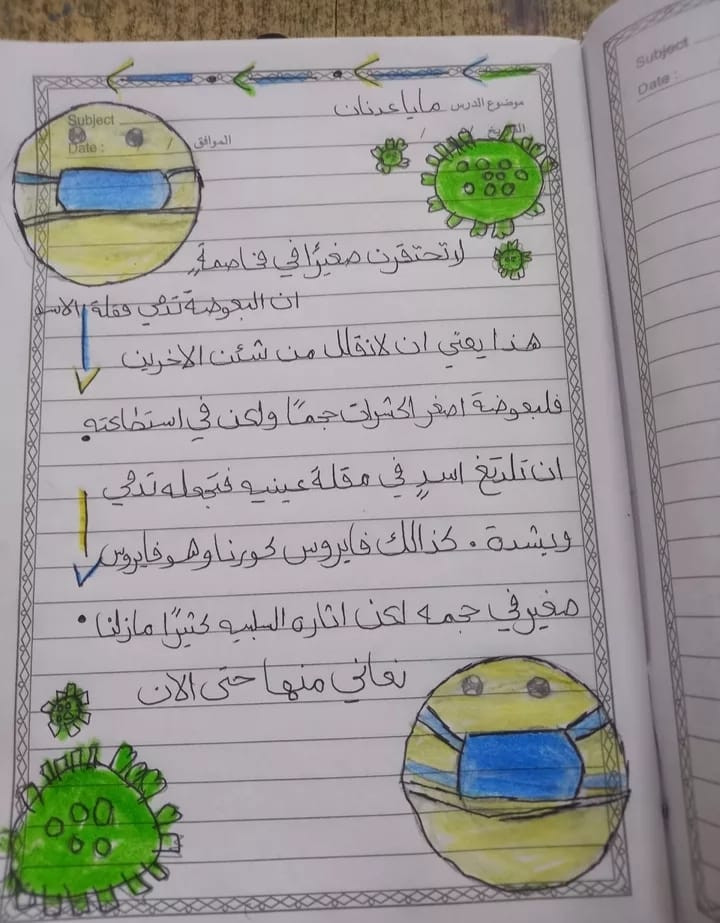 Subject
موضوع الدرس مايا عدنان
Subject
Date :
الموافق / /
Date :
لا تحتقرن صغيرًا في مخاصمةٍ
ان البعوضة تدمي مقلة الاسد
هذا يعني ان لا نقلل من شئن الاخرين
فلبعوضة اصغر الحشرات حجمًا ولكن في استطاعته
ان تلدغ اسدٍ في مقلة عينيه فتجعله تدمي
وبشدة . كذالك فايروس كورنا وهو فايروس
صغير في حجمه لكن اثاره السلبيه كثيرًا مازلنا
نعاني منها حتى الان